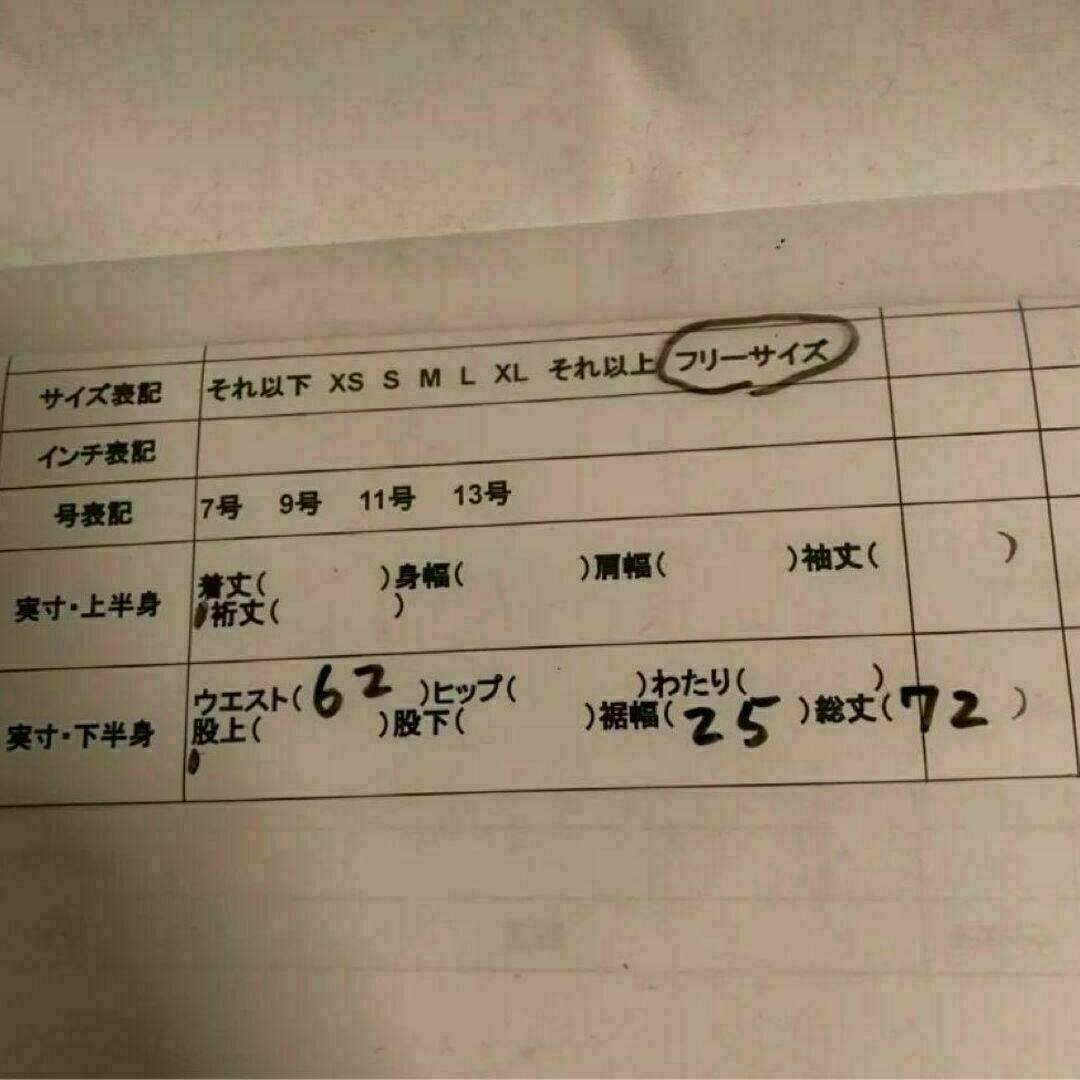 サイズ表記 それ以下 XS S M L XL それ以上 フリーサイズ
インチ表記
号表記 7号 9号 11号 13号
実寸・上半身
着丈( )身幅( )肩幅( )袖丈( )
裄丈( )
実寸・下半身
ウエスト(62)ヒップ( )わたり( )
股上( )股下( )裾幅(25)総丈(72)